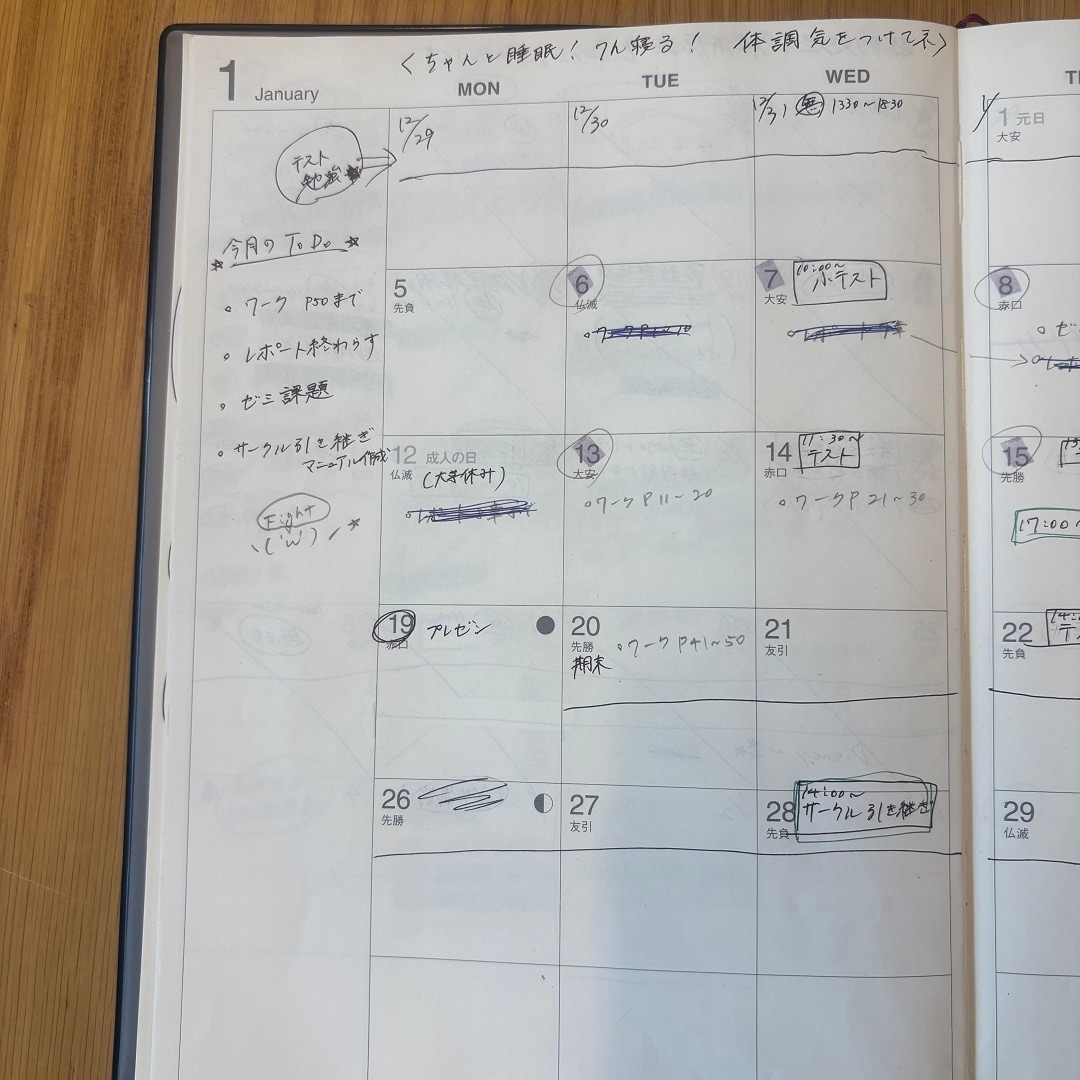 <ちゃんと睡眠！7h寝る！ 体調気をつけてネ>
1 January
MON TUE WED
12/29
12/30
12/31 1330〜1830
1/
1 元日
大安
テスト
勉強
☆今月の ToDo☆
○ ワーク P50まで
○ レポート終わらす
○ ゼミ課題
○ サークル引き継ぎ
マニュアル作成
Fight
\('ω')/☆
5
先負
6
仏滅
7
大安
10:00〜
小テスト
8
赤口
○ ゼ
12 成人の日
仏滅 (大学休み)
13
大安
○ワークP11〜20
14
赤口
11:30〜
テスト
○ワークP21〜30
15
先勝
17:00〜
19 プレゼン
赤口
20
先勝
期末
○ワークP41〜50
21
友引
22
先負
26
先勝
27
友引
28
先負
14:00〜
サークル引き継ぎ
29
仏滅